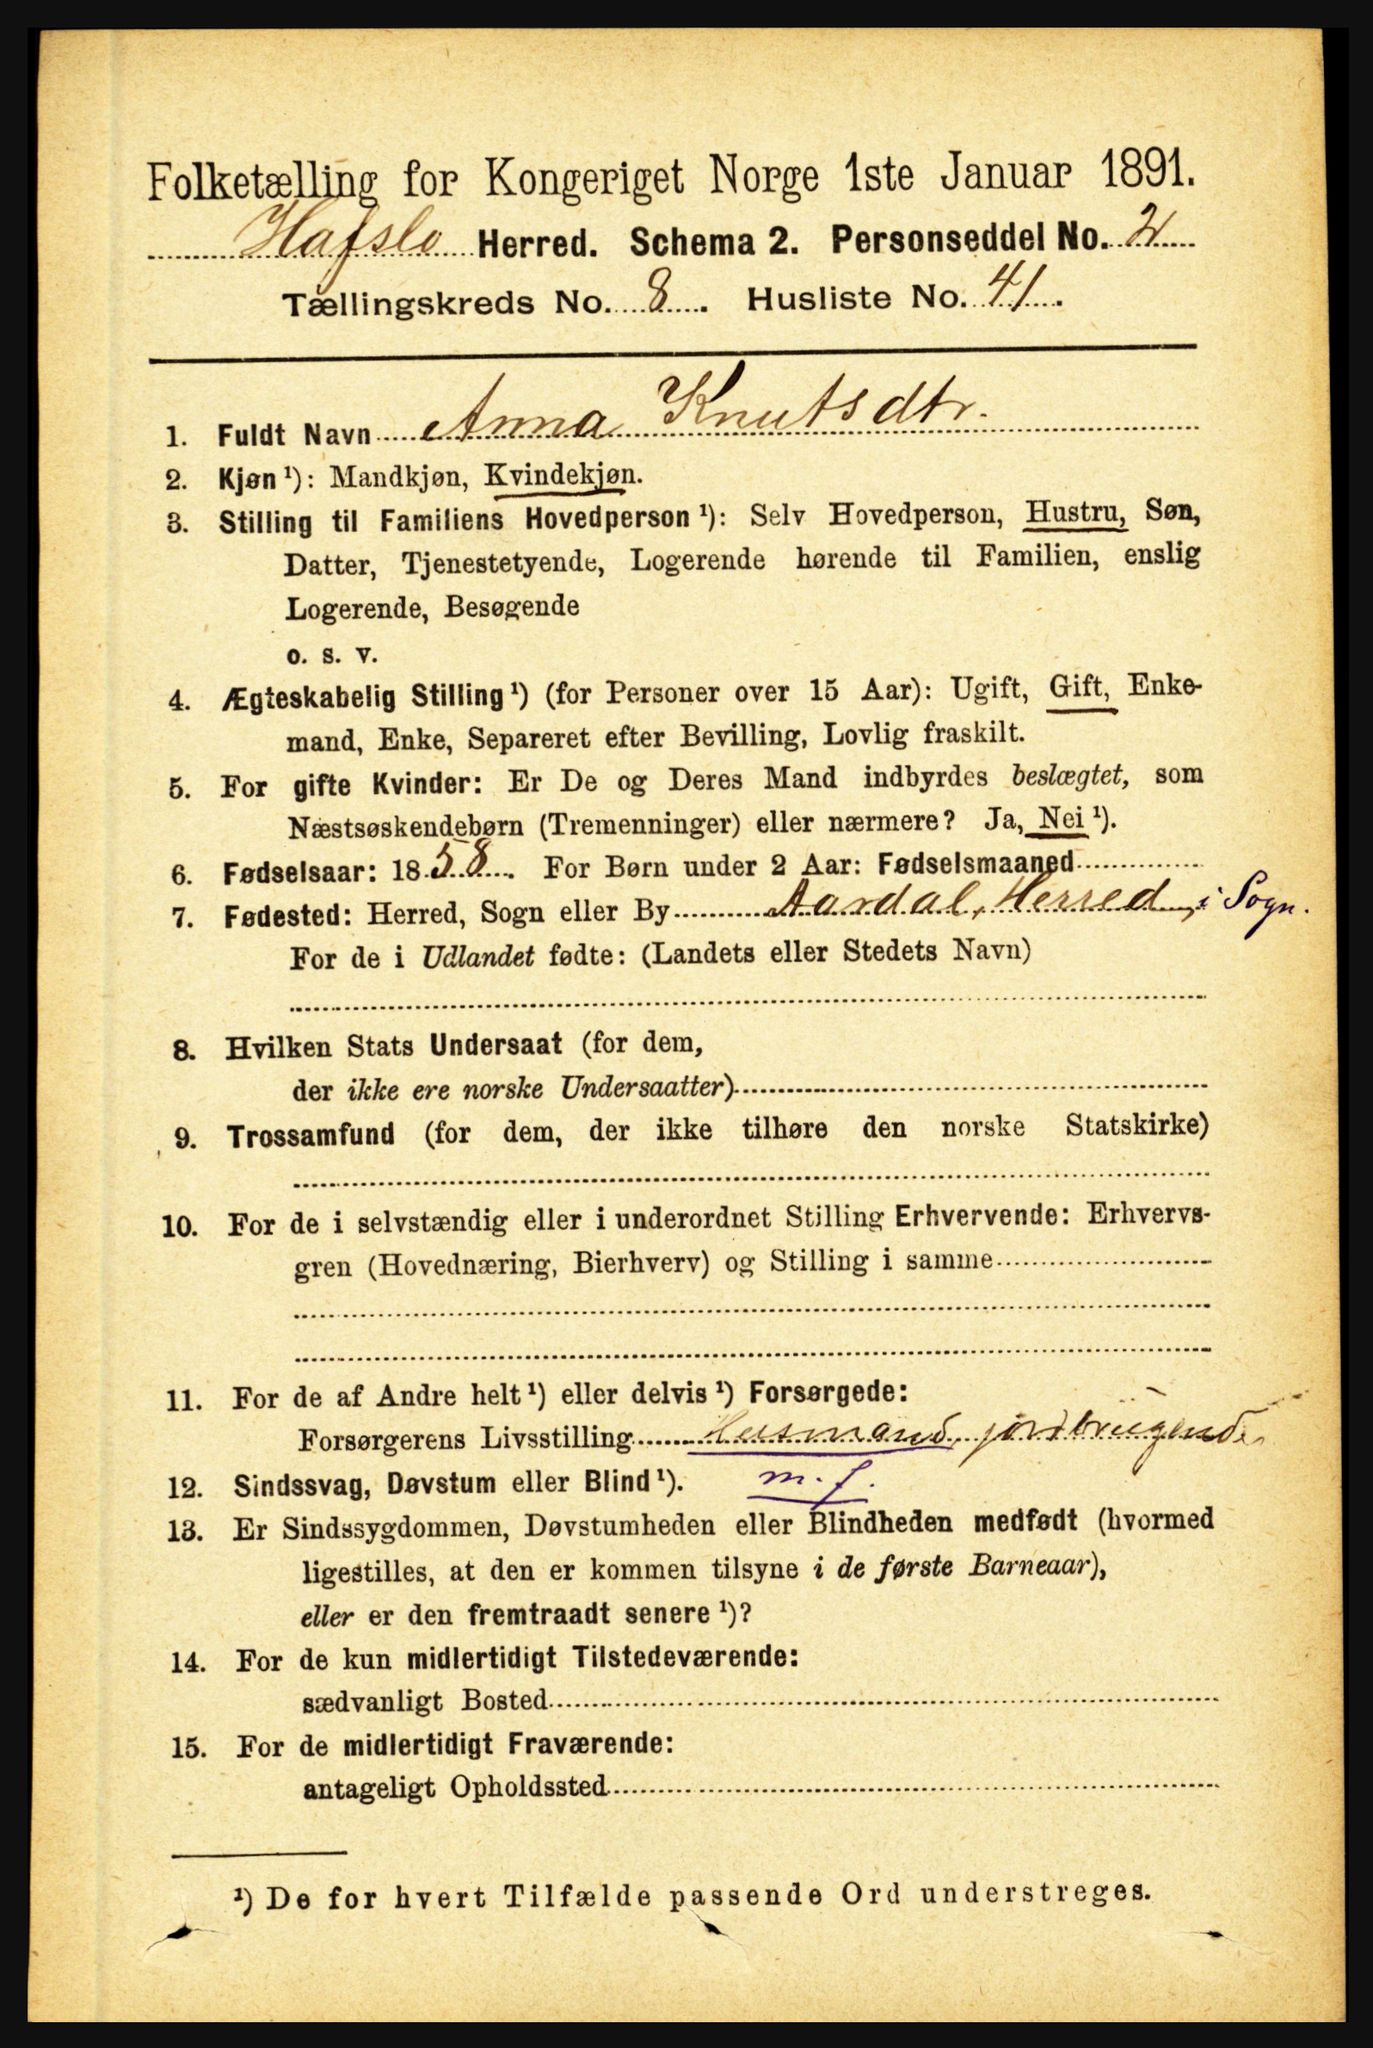 Folketælling for Kongeriget Norge 1ste Januar 1891.
Hafslo Herred. Schema 2. Personseddel No. 2
Tællingskreds No. 8. Husliste No. 41.
1. Fuldt Navn Anna Knutsdtr.
2. Kjøn ¹): Mandkjøn, Kvindekjøn.
3. Stilling til Familiens Hovedperson ¹): Selv Hovedperson, Hustru, Søn,
Datter, Tjenestetyende, Logerende hørende til Familien, enslig
Logerende, Besøgende
o. s. v.
4. Ægteskabelig Stilling ¹) (for Personer over 15 Aar): Ugift, Gift, Enke-
mand, Enke, Separeret efter Bevilling, Lovlig fraskilt.
5. For gifte Kvinder: Er De og Deres Mand indbyrdes beslægtet, som
Næstsøskendebørn (Tremenninger) eller nærmere? Ja, Nei ¹).
6. Fødselsaar: 1858. For Børn under 2 Aar: Fødselsmaaned
7. Fødested: Herred, Sogn eller By Aardal, Herred, i Sogn.
For de i Udlandet fødte: (Landets eller Stedets Navn)
8. Hvilken Stats Undersaat (for dem,
der ikke ere norske Undersaatter)
9. Trossamfund (for dem, der ikke tilhøre den norske Statskirke)
10. For de i selvstændig eller i underordnet Stilling Erhvervende: Erhvervs-
gren (Hovednæring, Bierhverv) og Stilling i samme
11. For de af Andre helt ¹) eller delvis ¹) Forsørgede:
Forsørgerens Livsstilling Husmand, jordbrugende
12. Sindssvag, Døvstum eller Blind ¹). m. f.
13. Er Sindssygdommen, Døvstumheden eller Blindheden medfødt (hvormed
ligestilles, at den er kommen tilsyne i de første Barneaar),
eller er den fremtraadt senere ¹)?
14. For de kun midlertidigt Tilstedeværende:
sædvanligt Bosted
15. For de midlertidigt Fraværende:
antageligt Opholdssted
¹) De for hvert Tilfælde passende Ord understreges.